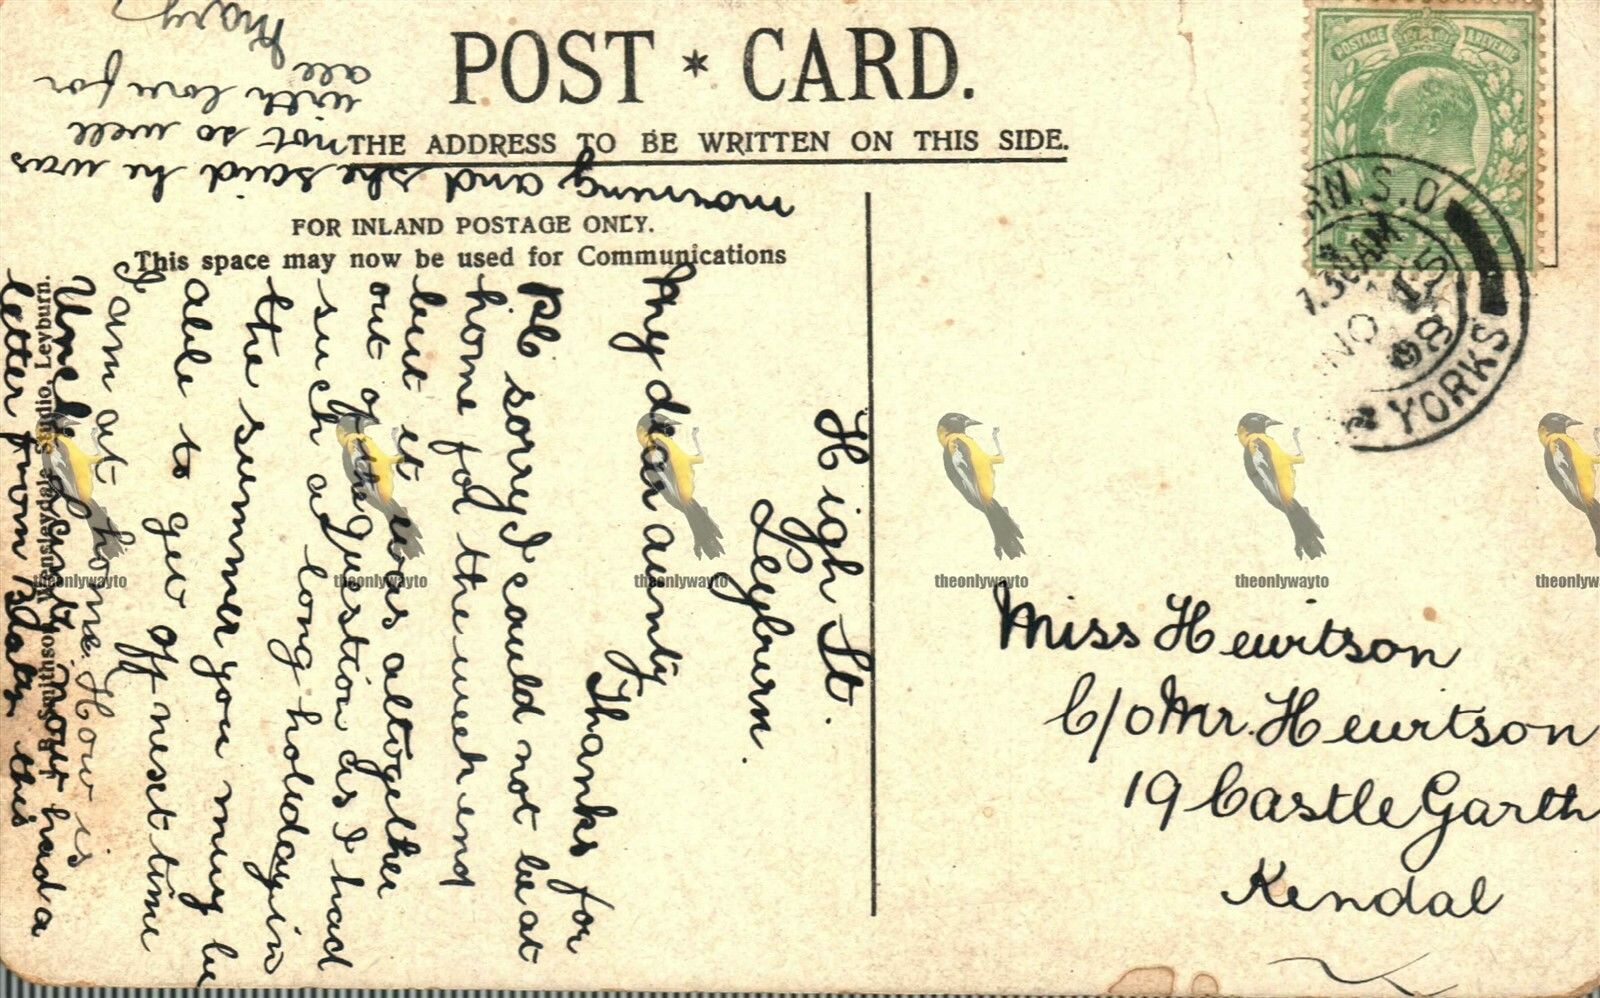 POST * CARD.
THE ADDRESS TO BE WRITTEN ON THIS SIDE.
FOR INLAND POSTAGE ONLY.
This space may now be used for Communications
High St.
Leyburn.
My dear aunty
Thanks for
PC sorry I could not be at
home for the week end
but it was altogether
out of the question as I had
such a long holiday in
the summer you may be
able to give off next time
I am at home. How is
Uncle? now had a
letter from this
morning and she said he was
not so well
with love for
all
Mary
Wensleydale Studio, Leyburn.
POSTAGE & REVENUE
S.O
7.30AM
NO 15
08
YORKS
Miss Hewitson
C/o Mr. Hewitson
19 Castle Garth
Kendal
theonlywayto
theonlywayto
theonlywayto
theonlywayto
theonlywayto
theonlyw